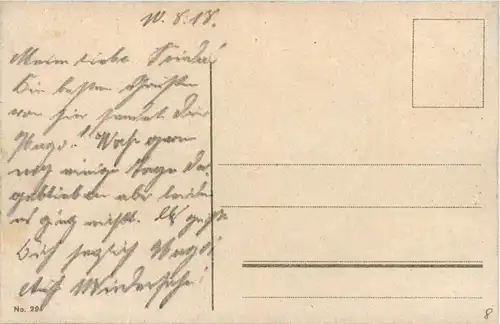 10. 8. 18.
Meine liebe Frieda!
Die besten Grüße
von hier sendet Dir
Hugo. Wäre gern
noch einige Tage da
geblieben aber leider
es ging nicht. Es grüßt
Dich herzlich Hugo!
Auf Wiedersehn!
No. 29
8